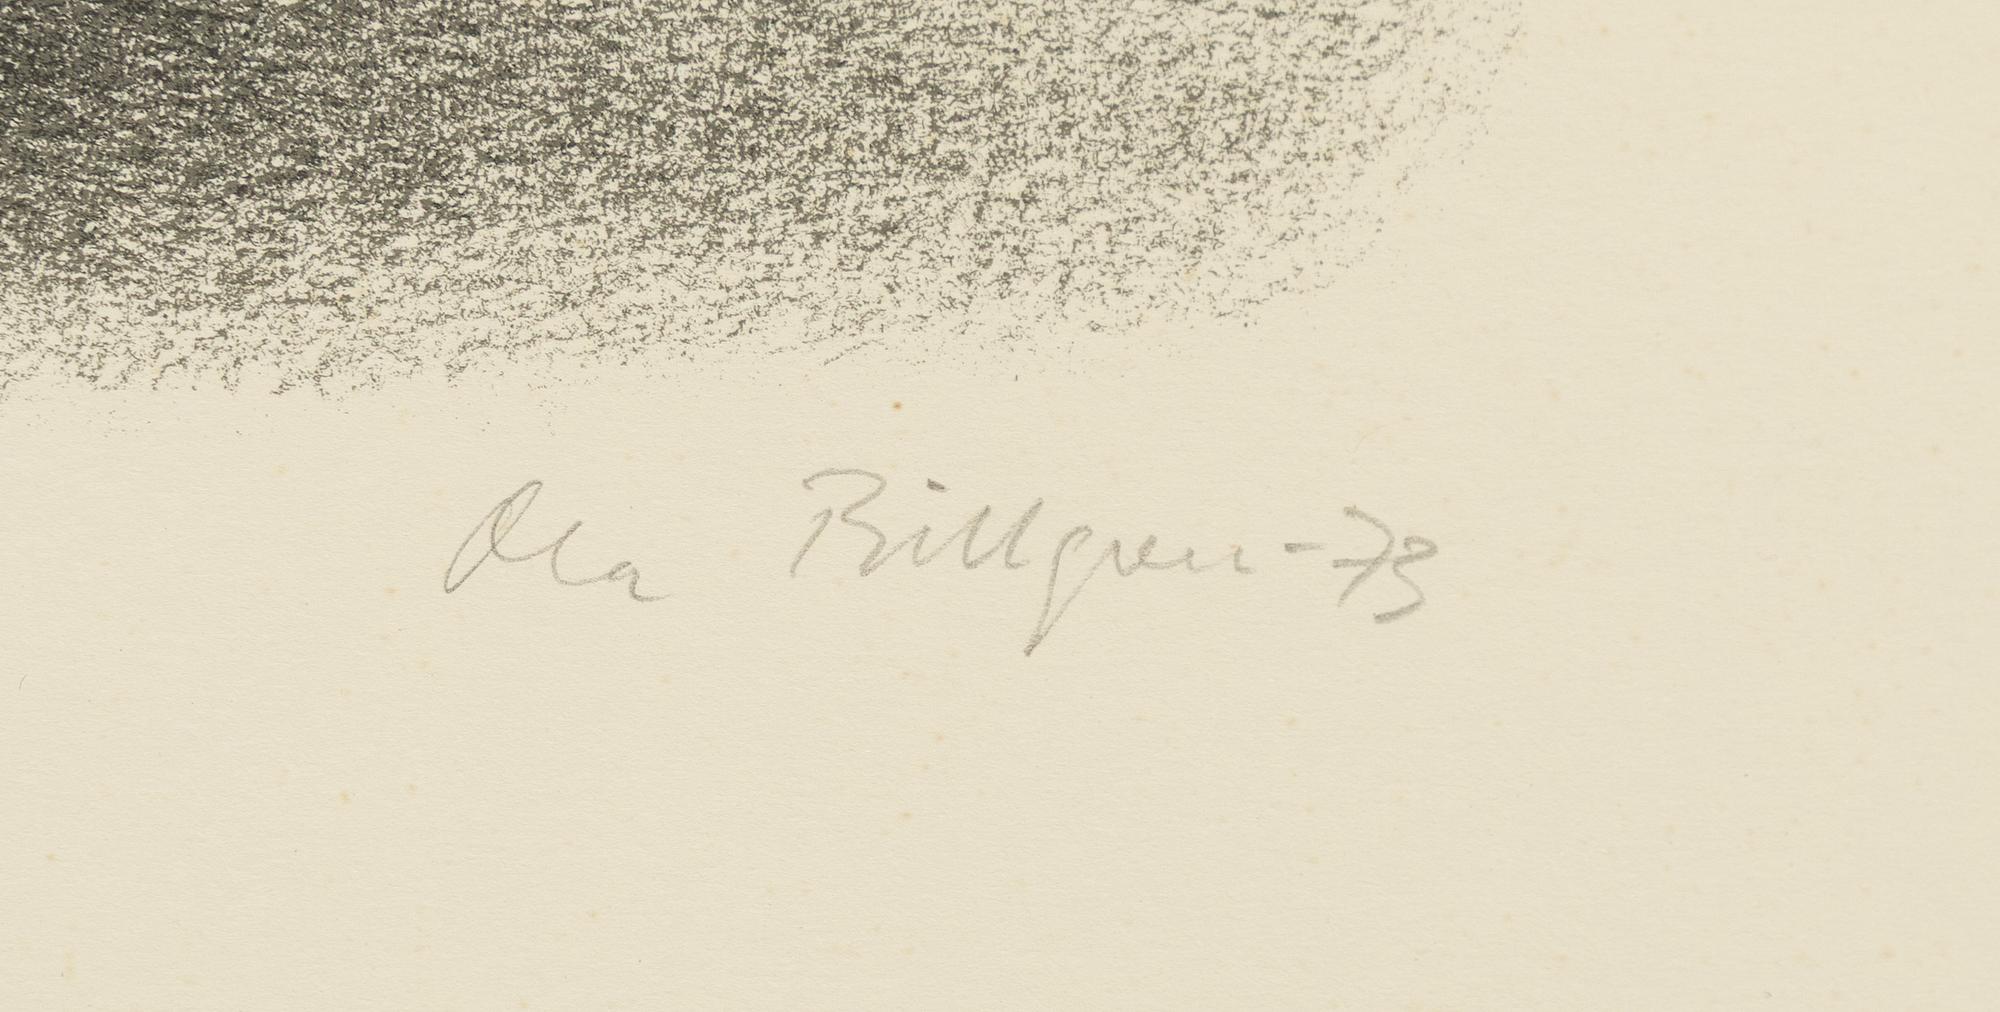 Ola Billgren -73